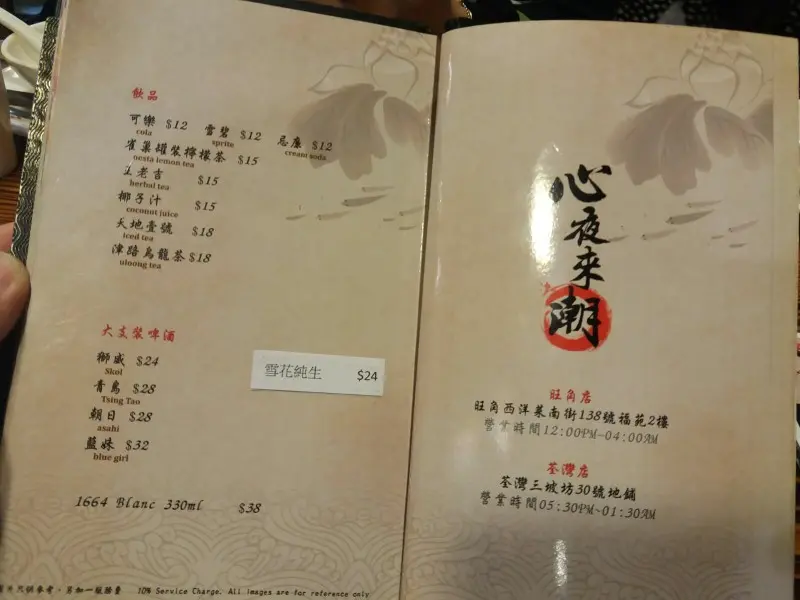 飲品
可樂 $12 雪碧 $12 忌廉 $12
cola sprite cream soda
雀巢罐裝檸檬茶 $15
nesta lemon tea
王老吉 $15
herbal tea
椰子汁 $15
coconut juice
天地壹號 $18
iced tea
津路烏龍茶 $18
uloong tea
大支裝啤酒
獅威 $24
Skol
青島 $28
Tsing Tao
朝日 $28
asahi
藍妹 $32
blue girl
雪花純生 $24
1664 Blanc 330ml $38
片只供參考，另加一服務費 10% Service Charge. All images are for reference only
心夜來潮
旺角店
旺角西洋菜南街138號福苑2樓
營業時間12:00PM-04:00AM
荃灣店
荃灣三坡坊30號地鋪
營業時間05:30PM~01:30AM